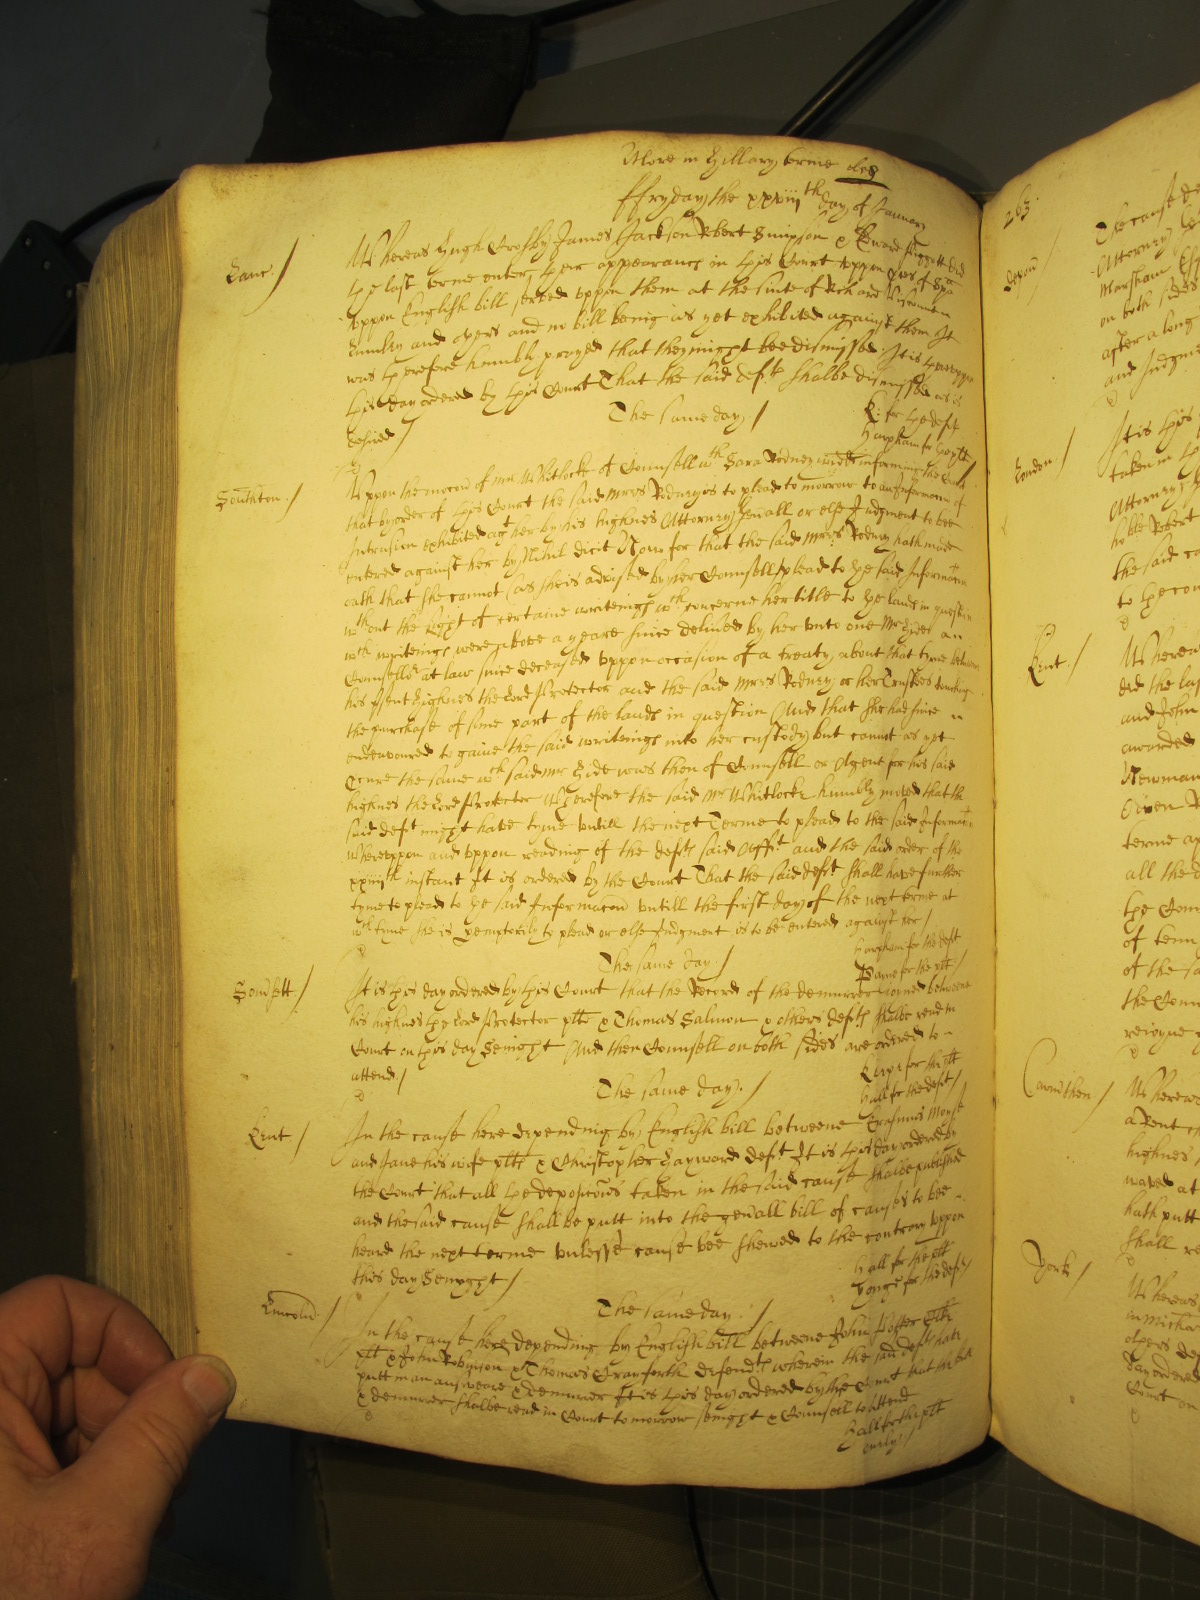 More in Hillary terme
ffryday the xxviijth day of January
Lanc. /
Whereas Hugh Crosby James Jackson Robert Simpson & Edward Piggott did
the last terme enter their appearance in this Court uppon
uppon English bill served uppon them at the suite of Richard
Lumley and others and no bill being as yet exhibited against them It
was therefore humbly prayed that they might bee dismissed. It is
this day ordered by this Court That the said defts shalbe dismissed as is
desired /
The same day /
K: for the defts
Harpham for the plt
Southton. /
Uppon the mocon of mr Whitlocke of Counsell wth Sara Rodney informing the Court
that by order of this Court the said Mrs Rodney is to plead to morrow to an Informacon of
Intrusion exhibited agt her by his highnes Attorney Genall or else Judgment to bee
entered against her by Nihil dicit Now for that the said Mrs Rodney hath made
oath that she cannot (as she is advised by her Counsell) plead to the said Informacon
wthout the sight of certaine writeings wch concerne her title to the lands in question
wch writeings were above a yeare since delived by her unto one Mr Hide a
Counsellr at law since deceased uppon occasion of a treaty about that tyme betweene
his psent highnes the Lord Protector and the said Mrs Rodney or her Trustees touching
the purchase of some part of the lands in question And that she had since
endeavoured to gaine the said writeings into her custody but cannot as yet
pcure the same wch said mr Hide was then of Counsell or Agent for his said
highnes the Lord Protector Wherefore the said Mr Whitlocke humbly moved that the
said deft might have tyme untill the next Terme to plead to the said Informacon
Whereuppon and uppon reading of the defts said Afft and the said order of the
xxiiijth instant It is ordered by the Court That the said deft shall have further
tyme to plead to the said Informacon untill the first day of the next terme at
wch tyme she is pemptorily to plead or else Judgment is to be entered against her /
The same day /
Harpham for the deft
Payne for the plt /
Somsett. /
It is this day ordered by this Court that the Record of the demurrer joyned betweene
his highnes the Lord Protector plt & Thomas Salmon & others defts shalbe read in
Court on this day Senight And then Counsell on both sides are ordered to
attend. /
The same day. /
for the plt
Hall for the deft /
Kent /
In the cause here depending by English bill betweene Erasmus Mouse
and Jane his wife plts & Christopher Hayward deft It is this day ordered by
the Court that all the deposicons taken in the said cause shalbe published
and the said cause shall be putt into the genall bill of causes to bee
heard the next terme unlesse cause bee shewed to the contrary uppon
this day Senyght /
Hall for the plt
for the deft /
Lincoln. /
The same day. /
In the cause here depending by English bill betweene John Potter
plt & John Robynson & Thomas Cranforth defendts wherein the said defts have
putt in an answeare & demurrer It is this day ordered by the Court that the bill
& demurrer shalbe read in Court to morrow senight & Counsell to attend
Hall for the plt
only /
263.
The cause
Attorney
Marsham Esq
on both sides
after a long
and Judgm
Devon /
London. /
It is this
taken in
Attorney
Robert
the said
to the
Kent. /
Whereas
did the las
and John
awarded
Newman
Owen
terme
all the
the Com
of
of the
the Coun
rejoyne
Carmthen /
Whereas
a Rent
highnes
at
hath putt
shall
York /
Whereas
in Mich
others de
day ordered
Court on